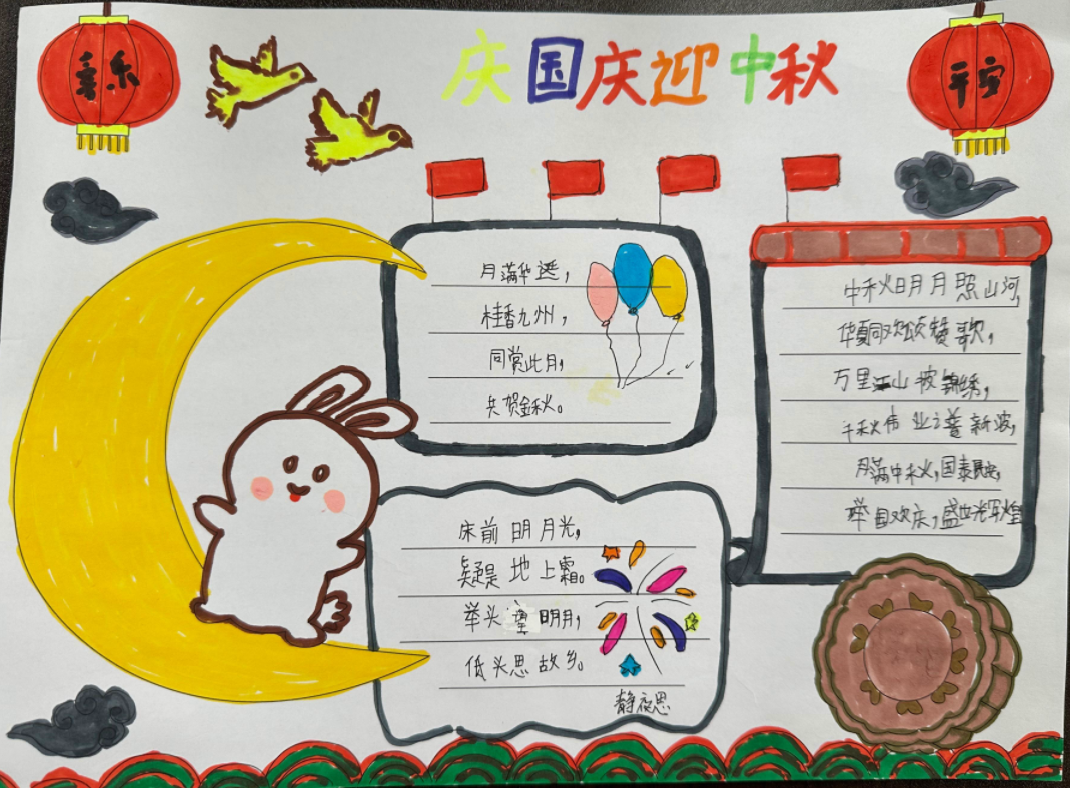 喜乐
庆国庆迎中秋
平安
月满华诞，
桂香九州，
同赏此月，
共贺金秋。
中秋明月照山河，
华夏同欢颂赞歌，
万里江山披锦绣，
千秋伟业之普新波，
月满中秋，国泰民安，
举国欢庆，盛世光辉煌
床前明月光，
疑是地上霜。
举头望明月，
低头思故乡。
静夜思